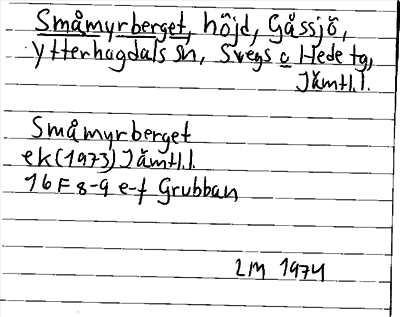 Småmyrberget, höjd, Gåssjö,
Ytterhogdals sn, Svegs o Hede tg,
Jämtl.l.
Småmyrberget
ek (1973) Jämtl.l.
16 F 8-9 e-f Grubban
LM 1974